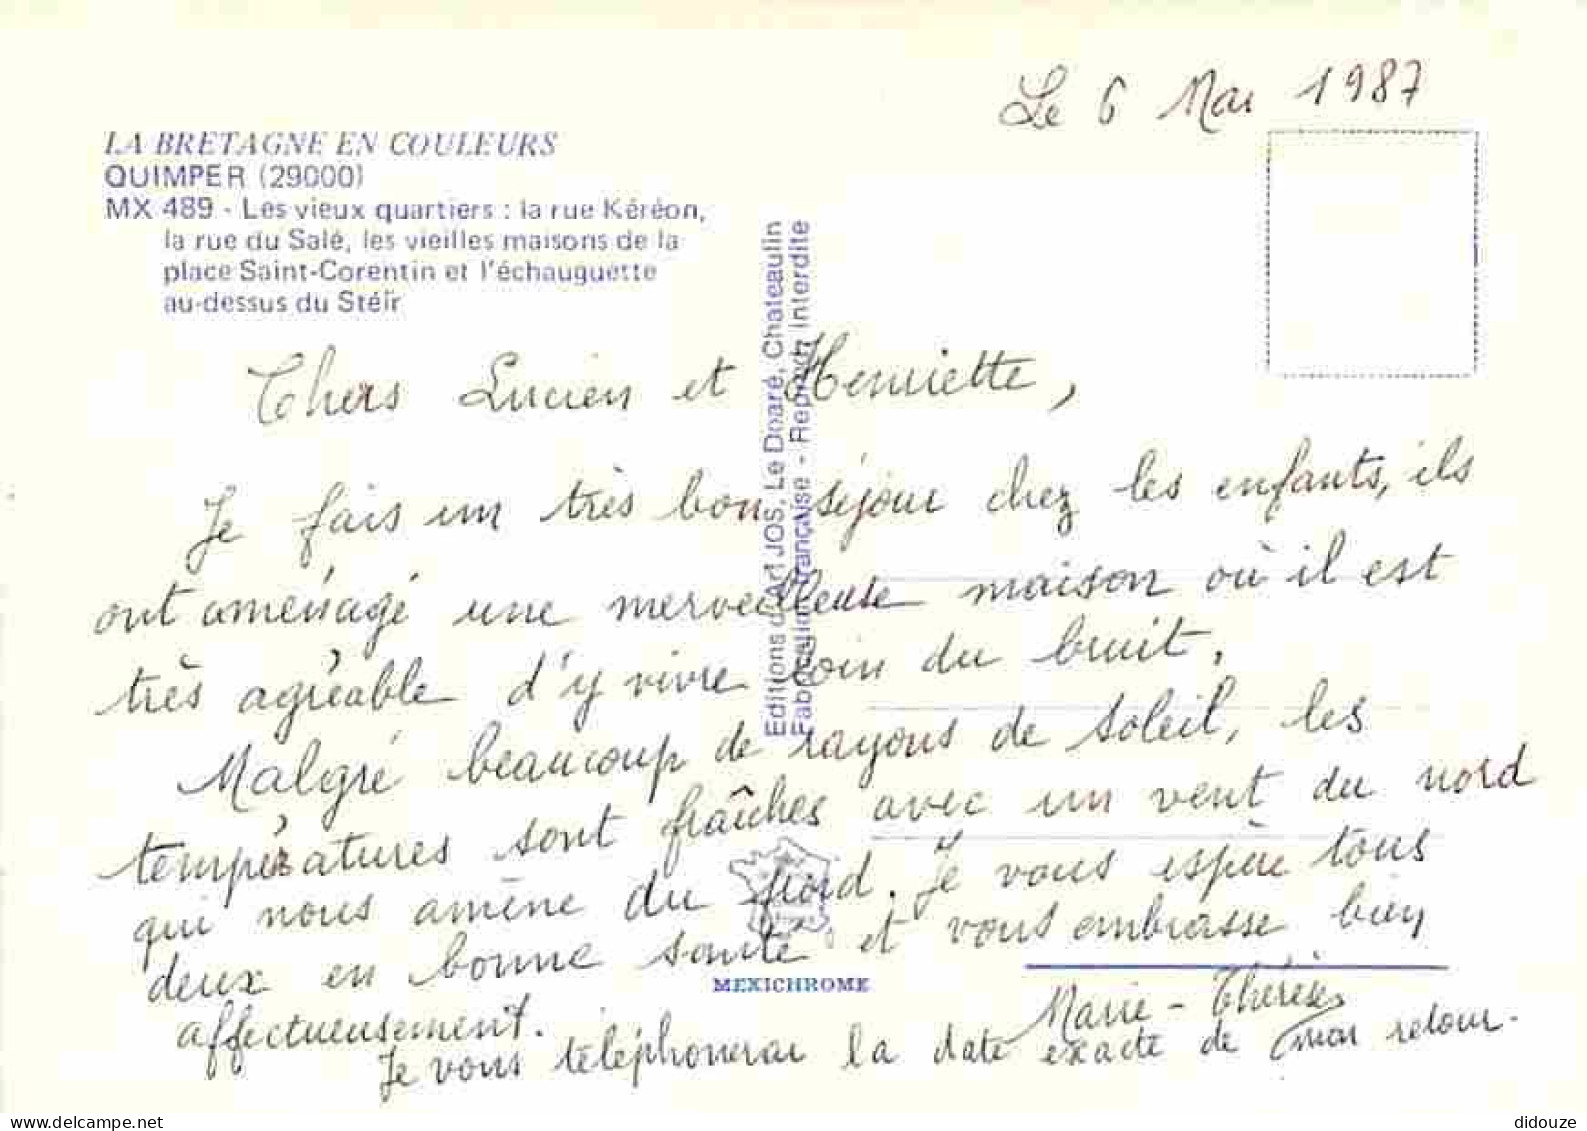 Le 6 Mai 1987
LA BRETAGNE EN COULEURS
QUIMPER (29000)
MX 489 - Les vieux quartiers : la rue Kéréon,
la rue du Salé, les vieilles maisons de la
place Saint-Corentin et l'échauguette
au-dessus du Stéïr
Editions d'Art JOS, Le Doaré, Chateaulin
Fabrication française - Reprod. Interdite
Chers Lucien et Henriette,
Je fais un très bon séjour chez les enfants, ils
ont aménagé une merveilleuse maison où il est
très agréable d'y vivre loin du bruit.
Malgré beaucoup de rayons de soleil, les
températures sont fraîches avec un vent du nord
qui nous amène du froid. Je vous espère tous
deux en bonne santé et vous embrasse bien
affectueusement.
Marie-Thérèse
Je vous téléphonerai la date exacte de mon retour.
MEXICHROME
didouze